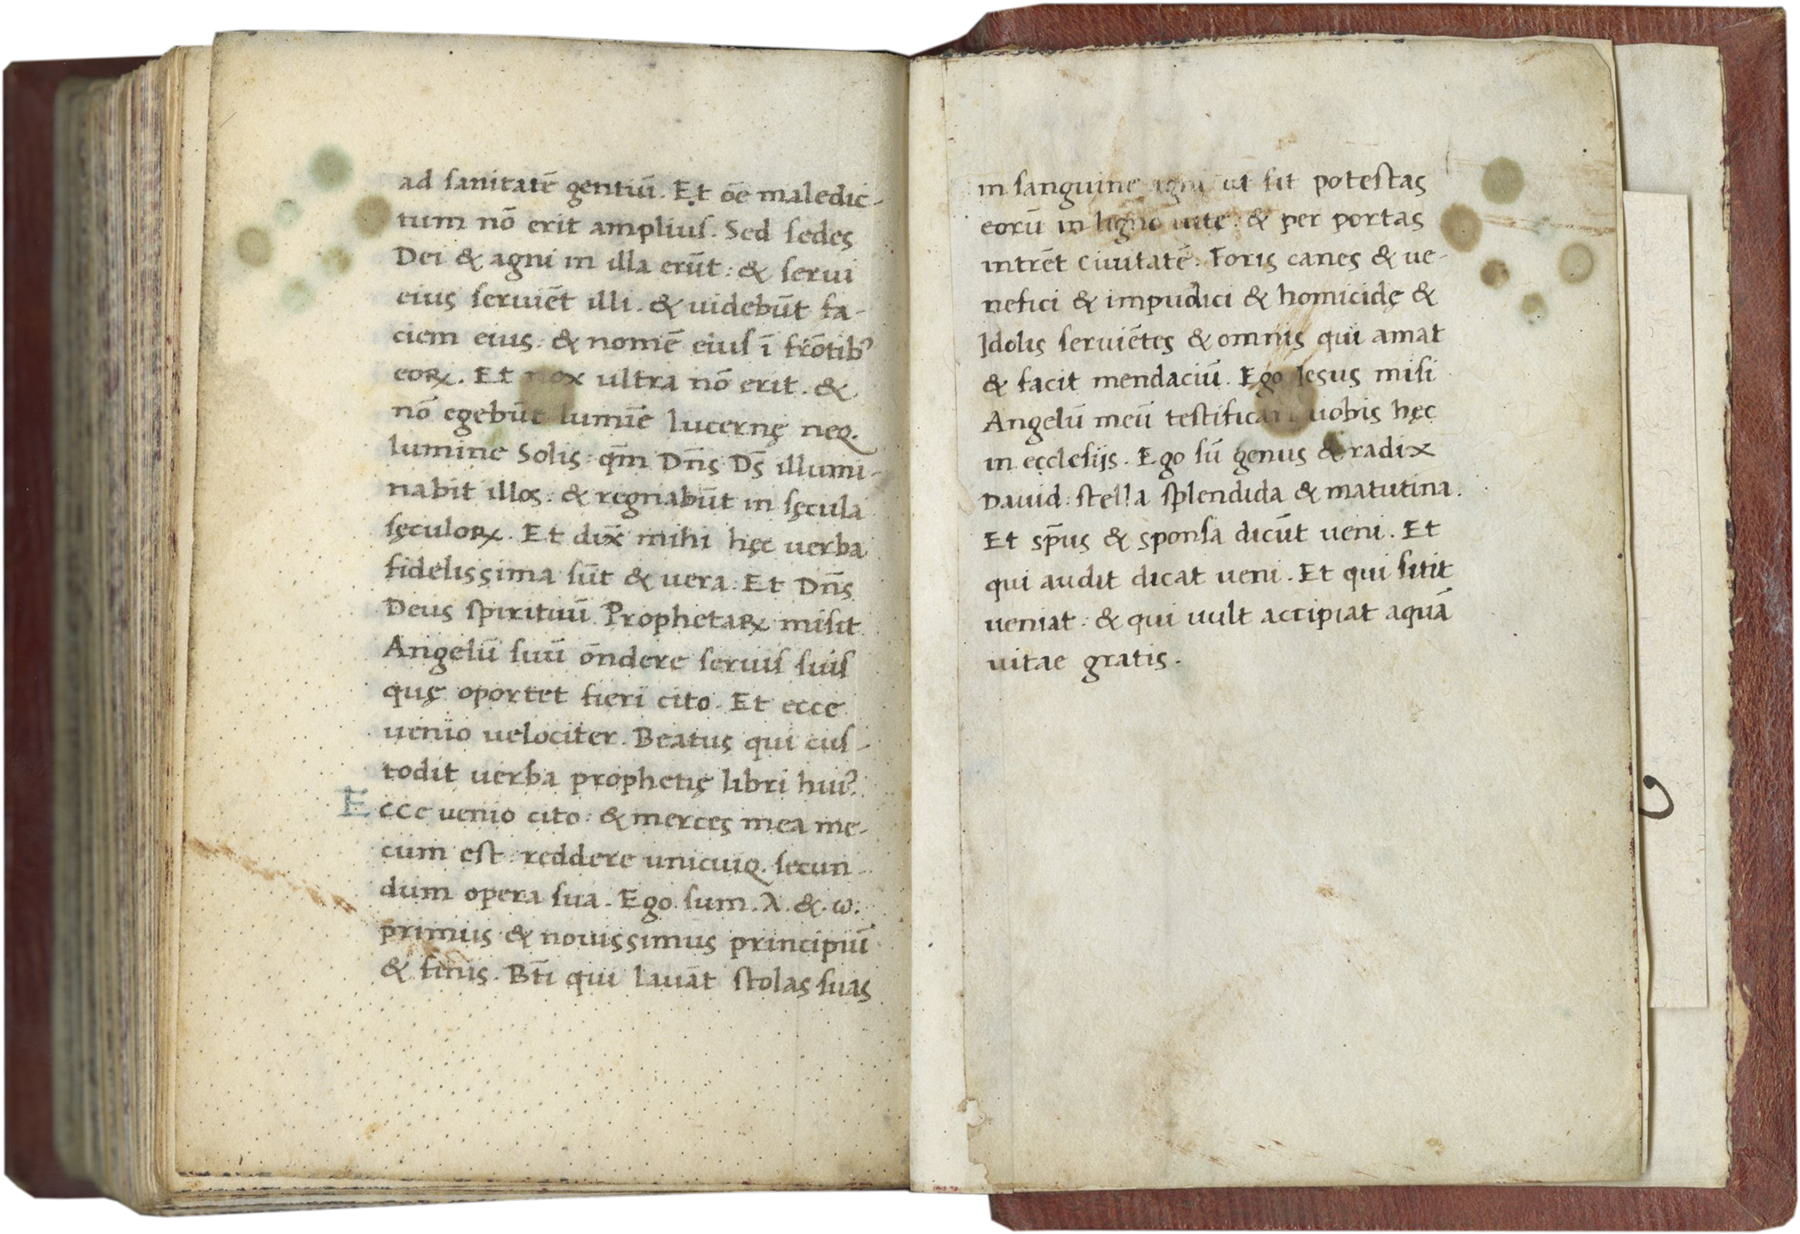 ad sanitatē gentiū. Et oē maledic-
tum nō erit amplius. Sed sedes
Dei & agni in illa erūt: & servi
eius serviēt illi. & videbūt fa-
ciem eius: & nomē eius ī frōtibꝰ
eoꝝ. Et nox ultra nō erit. &
nō egebūt lumīe lucernę neq.
lumine Solis: qm̄ Dn̄s Ds̄ illumi-
nabit illos: & regnabūt in sęcula
sęculoꝝ. Et dix̄ mihi hęc verba
fidelissima sūt & vera: Et Dn̄s
Deus spirituū Prophetaꝝ misit
Angelū suū on̄dere servis suis
quę oportet fieri cito. Et ecce
venio velociter. Beatus qui cus-
todit verba prophetię libri huiꝰ.
Ecce venio cito: & merces mea me-
cum est: reddere unicuiq. secun-
dum opera sua. Ego sum .λ. & .ω.
primus & novissimus principiū
& finis. Bt̄i qui lavāt stolas suas
in sanguine agni ut sit potestas
eorū in ligno vite: & per portas
intrēt civitatē: Foris canes & ve-
nefici & impudici & homicidę &
Idolis serviētes & omnis qui amat
& facit mendaciū. Ego Iesus misi
Angelū meū testificari vobis hęc
in ecclesijs. Ego sū genus & radix
David: stella splendida & matutina.
Et sp̄us & sponsa dicūt veni. Et
qui audit dicat veni. Et qui sitit
veniat: & qui vult accipiat aquā
vitae gratis.